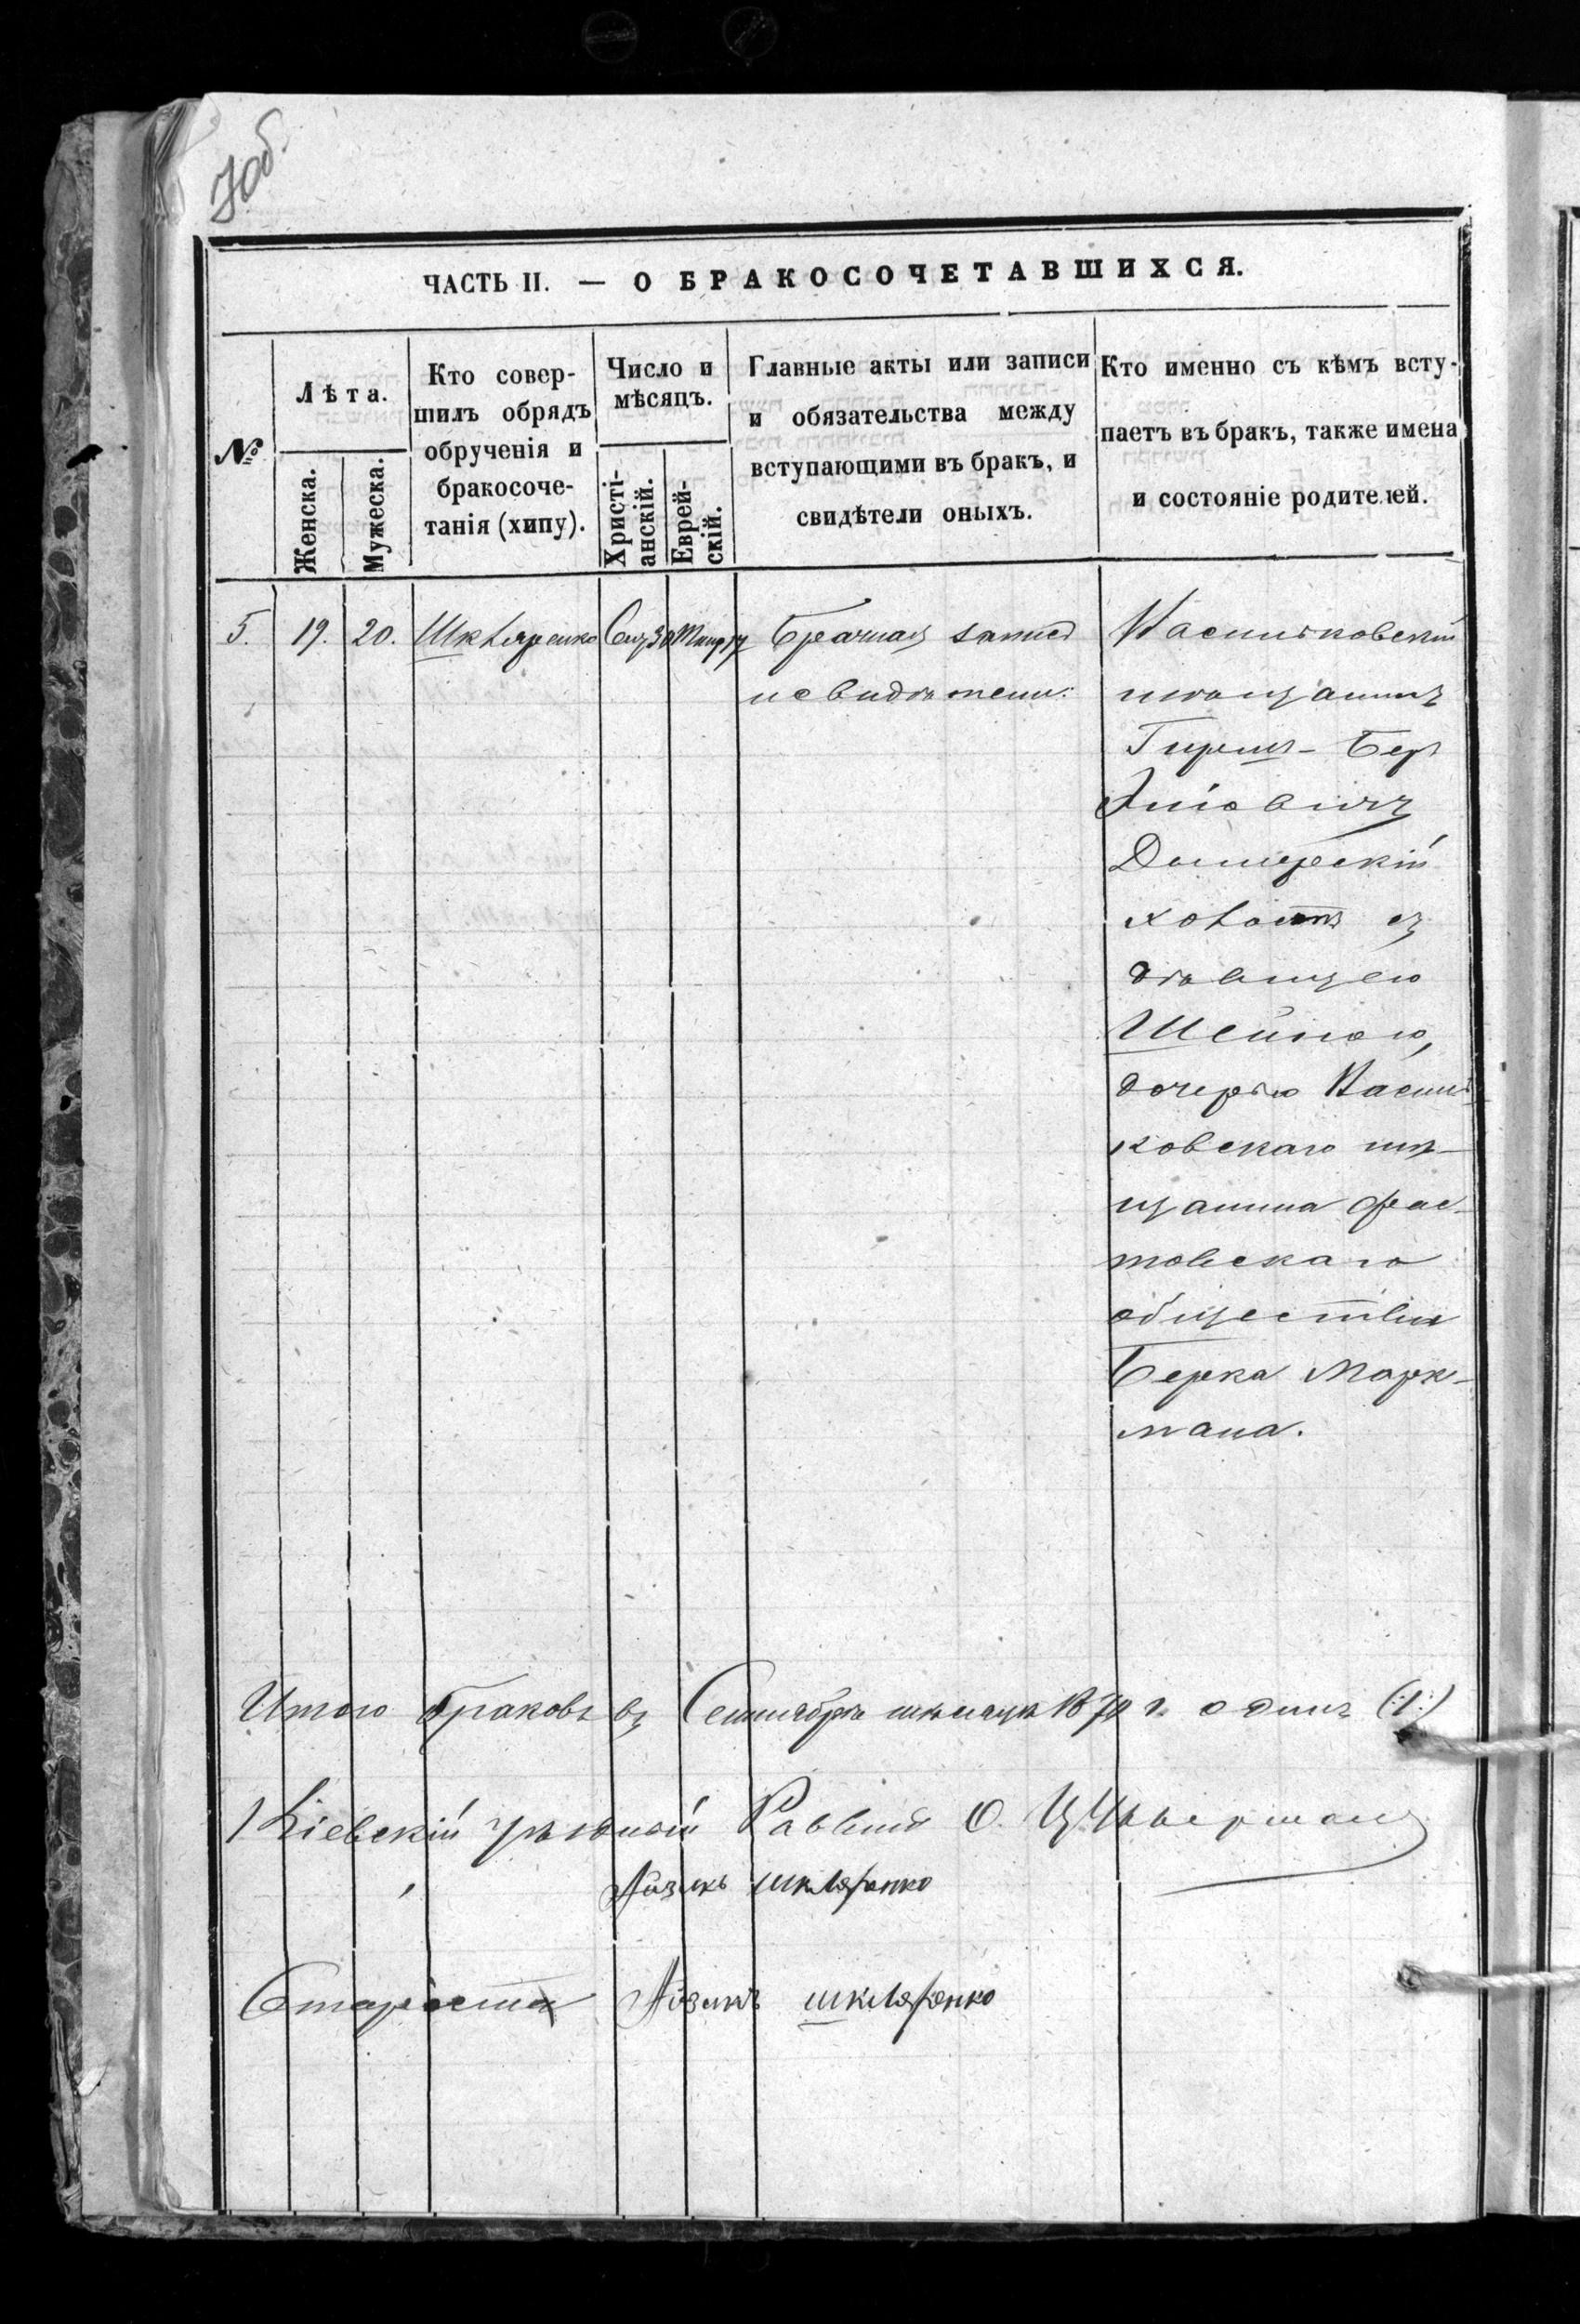 7об.
ЧАСТЬ II. — О БРАКОСОЧЕТАВШИХСЯ.
№
Лѣта.
Женска.
Мужеска.
Кто совер-
шилъ обрядъ
обрученія и
бракосоче-
танія (хипу).
Число и
мѣсяцъ.
Христі-
анскій.
Еврей-
скій.
Главные акты или записи
и обязательства между
вступающими въ бракъ, и
свидѣтели оныхъ.
Кто именно съ кѣмъ всту-
паетъ въ бракъ, также имена
и состояніе родителей.
5. 19. 20. Шкляренко Сен 30
Брачная запись
Васильковскій
мѣщанинъ
Гершъ-Беръ
Дымерскій
холостъ съ
дѣвицею
Шейною,
дочерью Василь
ковскаго мѣ-
щанина Фас-
товскаго
общества
Берка Марк-
мана.
Итого браковъ въ Сентябрѣ мѣсяцѣ 1870 г. одинъ (1)
Кіевскій уѣздный Раввинъ О. Цукерманъ
Айзикъ шкляренко
Староста Айзикъ шкляренко